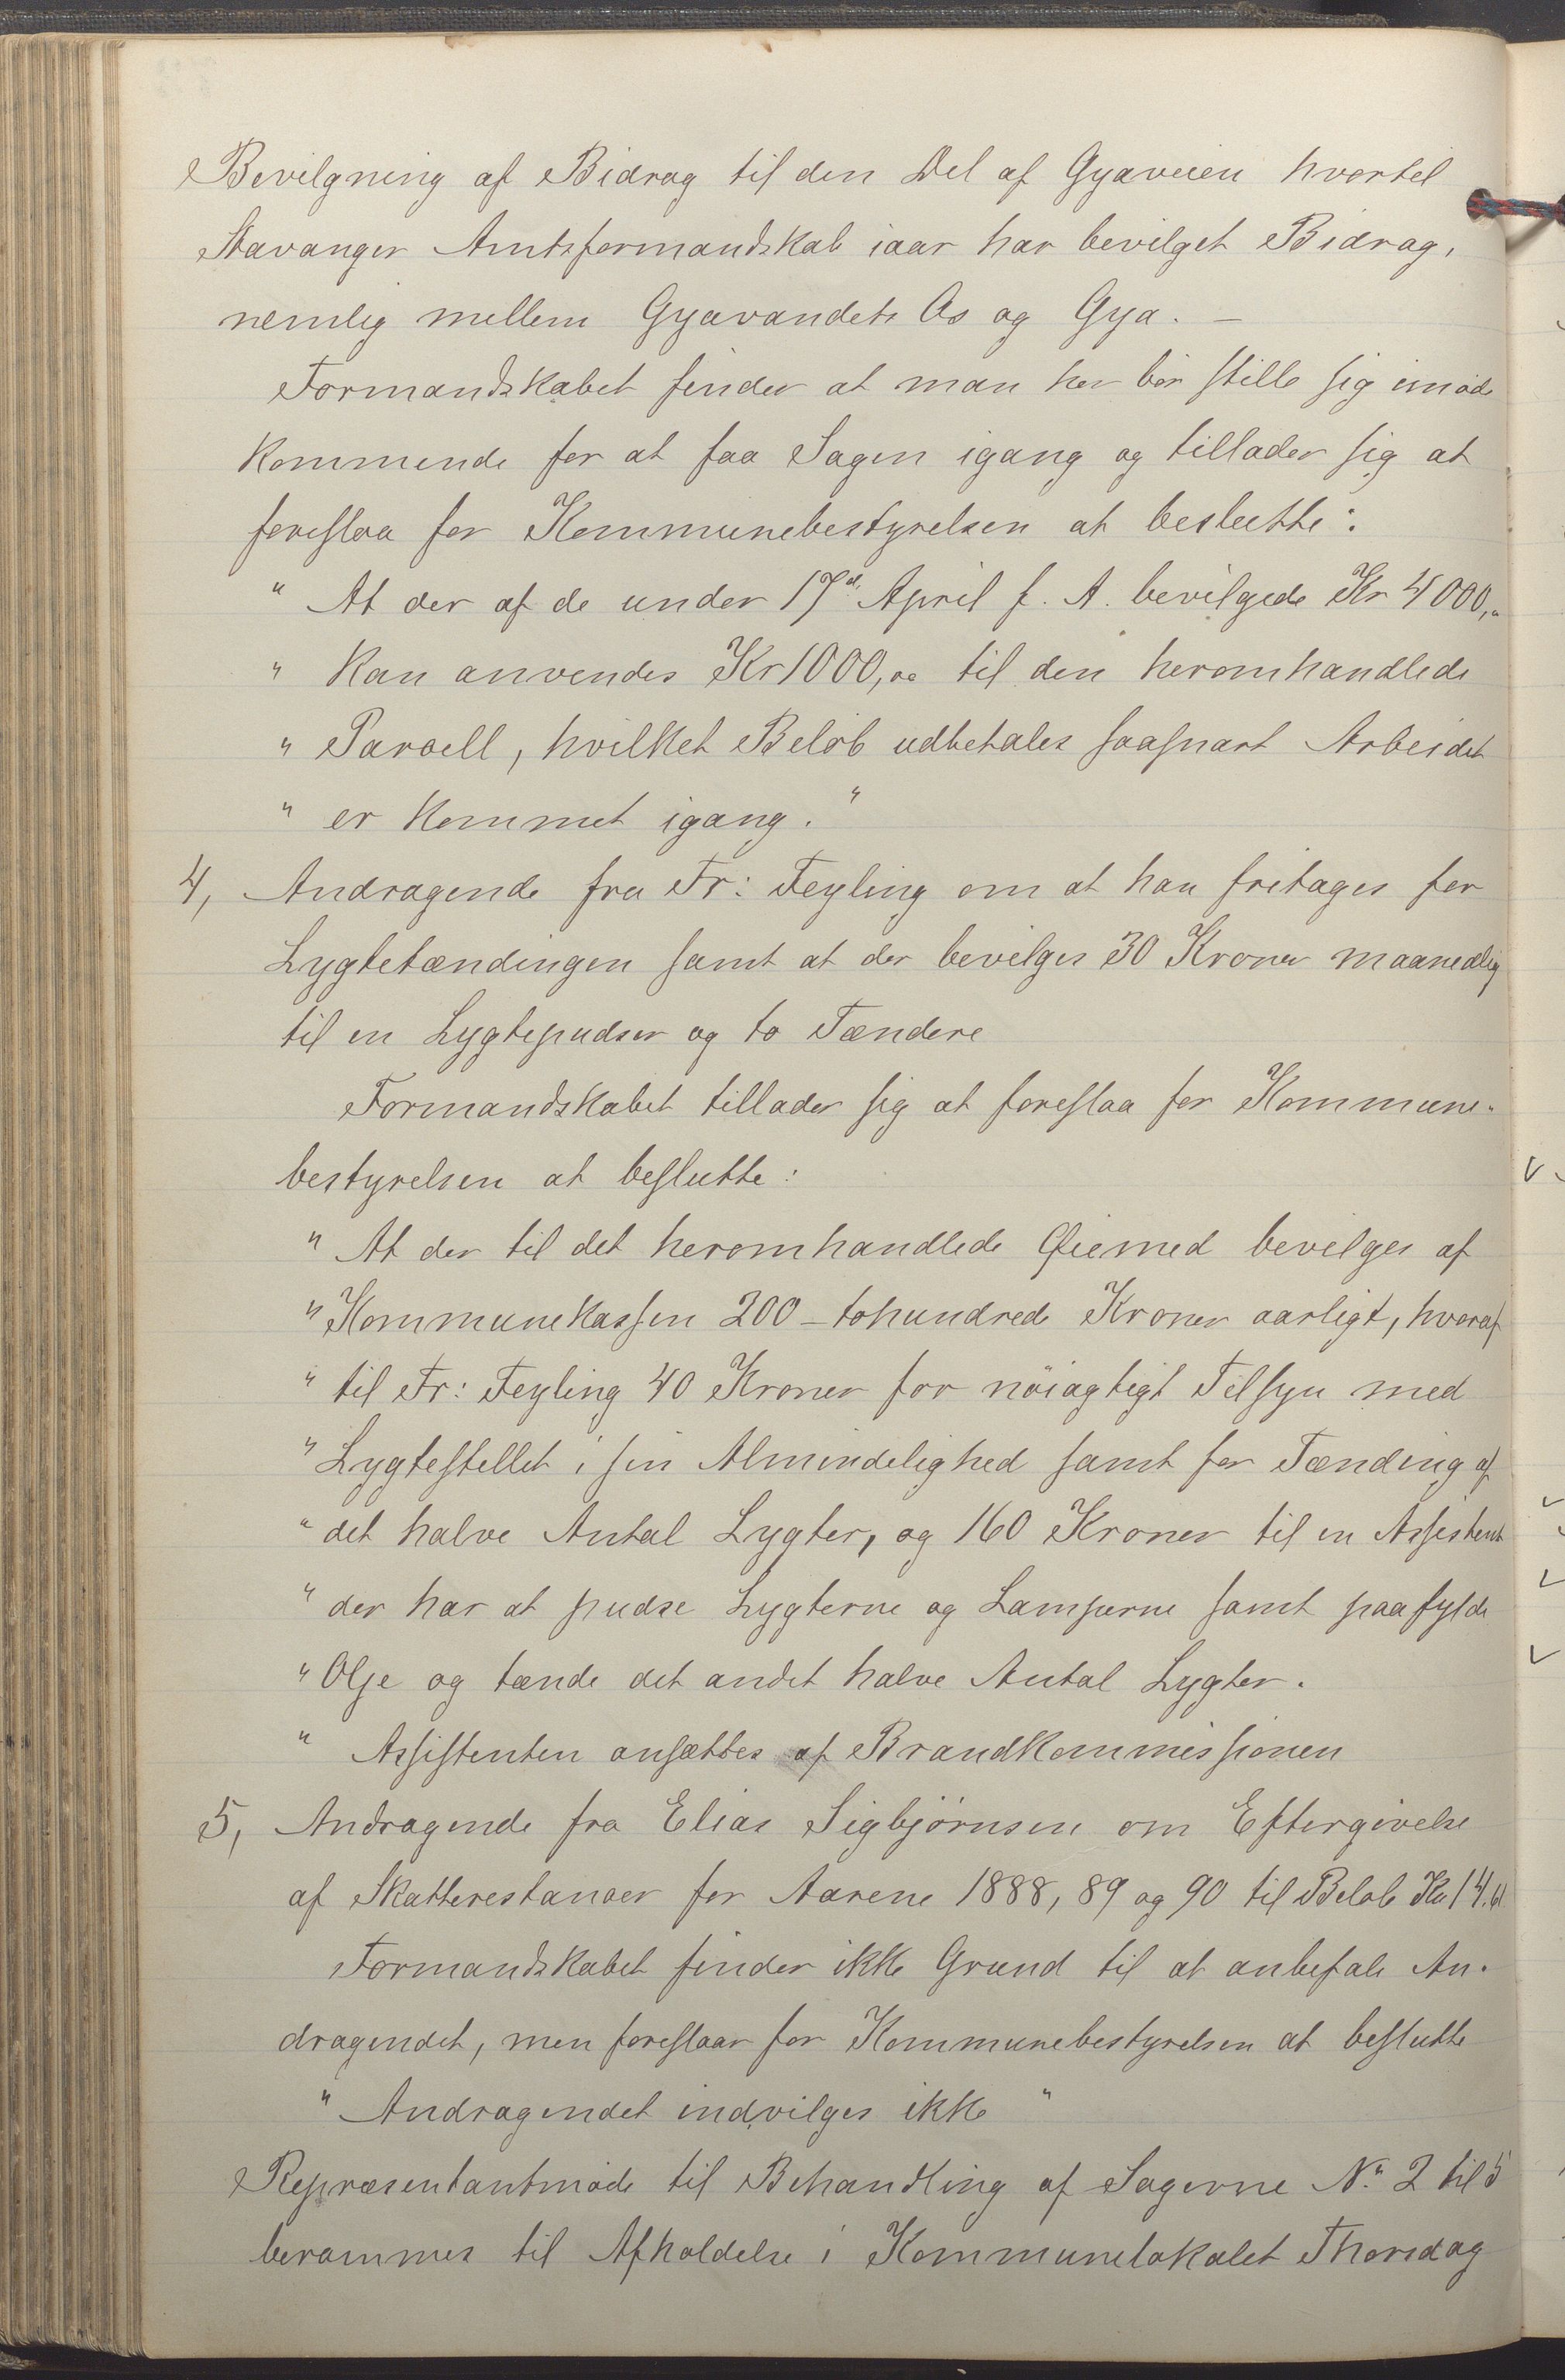 Bevilgning af Bidrag til den Del af Gyaveien hvortil
Stavanger Amtsformandskab iaar har bevilget Bidrag,
nemlig mellem Gyavandets Os og Gya. –
Formandskabet finder at man her bør stille sig imøde
kommende for at faa Sagen igang og tillader sig at
foreslaa for Kommunebestyrelsen at beslutte:
" At der af de under 17d. April f. A. bevilgede Kr 4000,"
" kan anvendes Kr 1000,00 til den heromhandlede
" Parcell, hvilket Beløb udbetales saasnart Arbeidet
" er kommet igang."
4, Andragende fra Fr: Feyling om at han fritages for
Lygtetændingen samt at der bevilges 30 Kroner maanedlig
til en Lygtepudser og to Tændere
Formandskabet tillader sig at foreslaa for Kommune-
bestyrelsen at beslutte:
" At der til det heromhandlede Øiemed bevilges af
" Kommunekassen 200 – tohundrede Kroner aarligt, hvoraf
" til Fr: Feyling 40 Kroner for nöiagtigt Tilsyn med
" Lygtestellet i sin Almindelighed samt for Tænding af
" det halve Antal Lygter, og 160 Kroner til en Assistent
" der har at pudse Lygterne og Lamperne samt paafylde
" Olje og tænde det andet halve Antal Lygter.
" Assistenten ansættes af Brandkommissionen
5, Andragende fra Elias Sigbjørnsen om Eftergivelse
af Skatterestancer for Aarene 1888, 89 og 90 til Beløb Kr 14.61
Formandskabet finder ikke Grund til at anbefale An-
dragendet, men foreslaar for Kommunebestyrelsen at beslutte
" Andragendet indvilges ikke "
Repræsentantmøde til Behandling af Sagerne No 2 til 5
berammes til Afholdelse i Kommunelokalet Thorsdag